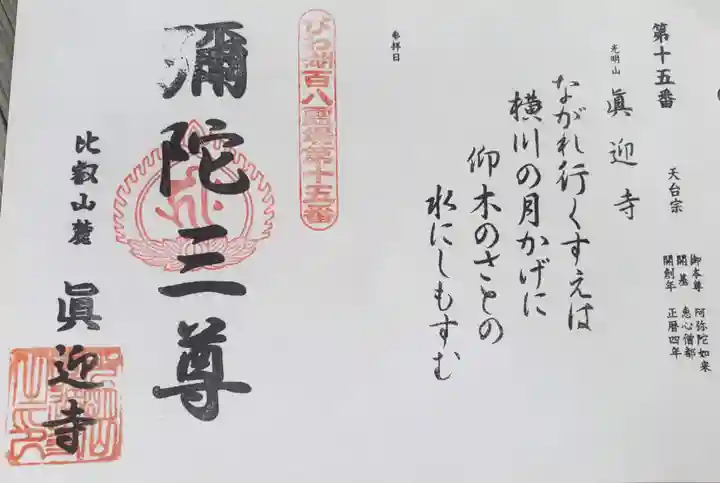 第十五番
光明山
眞迎寺
天台宗
御本尊 阿弥陀如来
開基 恵心僧都
開創年 正暦四年
ながれ行くすえは
横川の月かげに
仰木のさとの
水にしもすむ
参拝日
びわ湖百八霊場第十五番
彌陀三尊
比叡山麓
眞迎寺